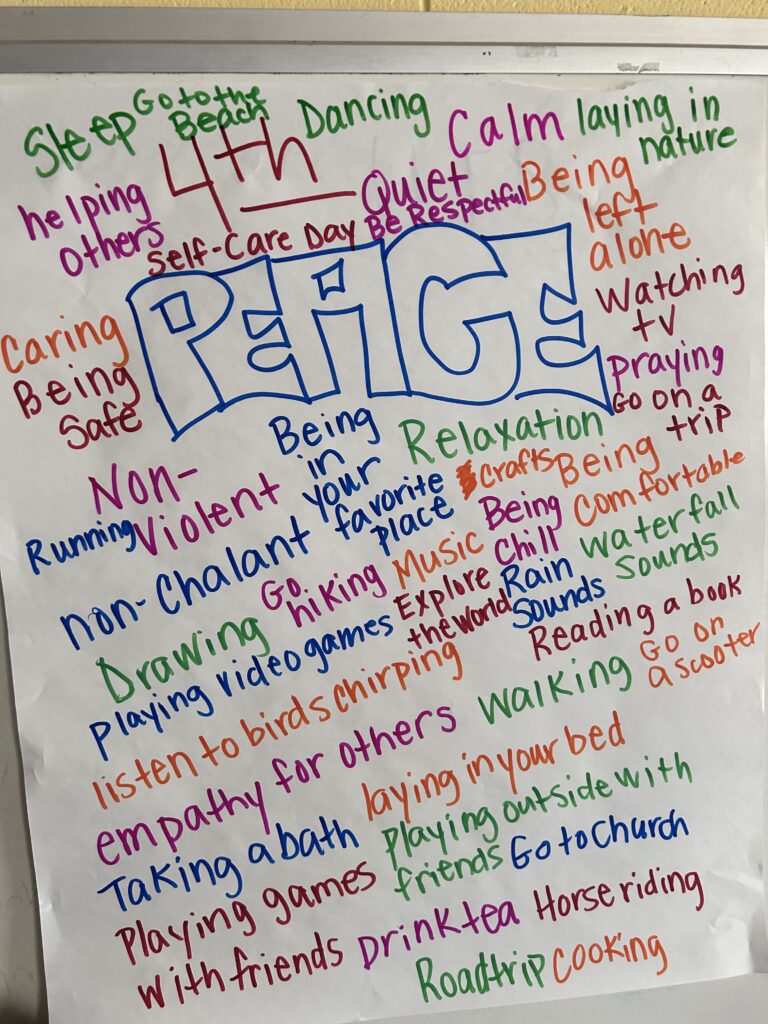 Sleep
Go to the
Beach
Dancing
Calm
laying in
nature
4th
helping
others
Quiet
Be Respectful
Being
left
alone
Self-Care Day
PEACE
Watching
tv
Caring
Being
Safe
praying
Go on a
trip
Non-
Violent
Being
in
your
favorite
place
Relaxation
Crafts
Being
comfortable
Running
non-Chalant
Being
Chill
Waterfall
Sounds
Go
hiking
Music
Explore
the World
Rain
Sounds
Drawing
Reading a book
Playing video games
listen to birds chirping
Walking
Go on
a scooter
empathy for others
laying in your bed
Taking a bath
Playing outside with
friends
Go to Church
Playing games
with friends
Drink tea
Horse riding
Roadtrip
Cooking